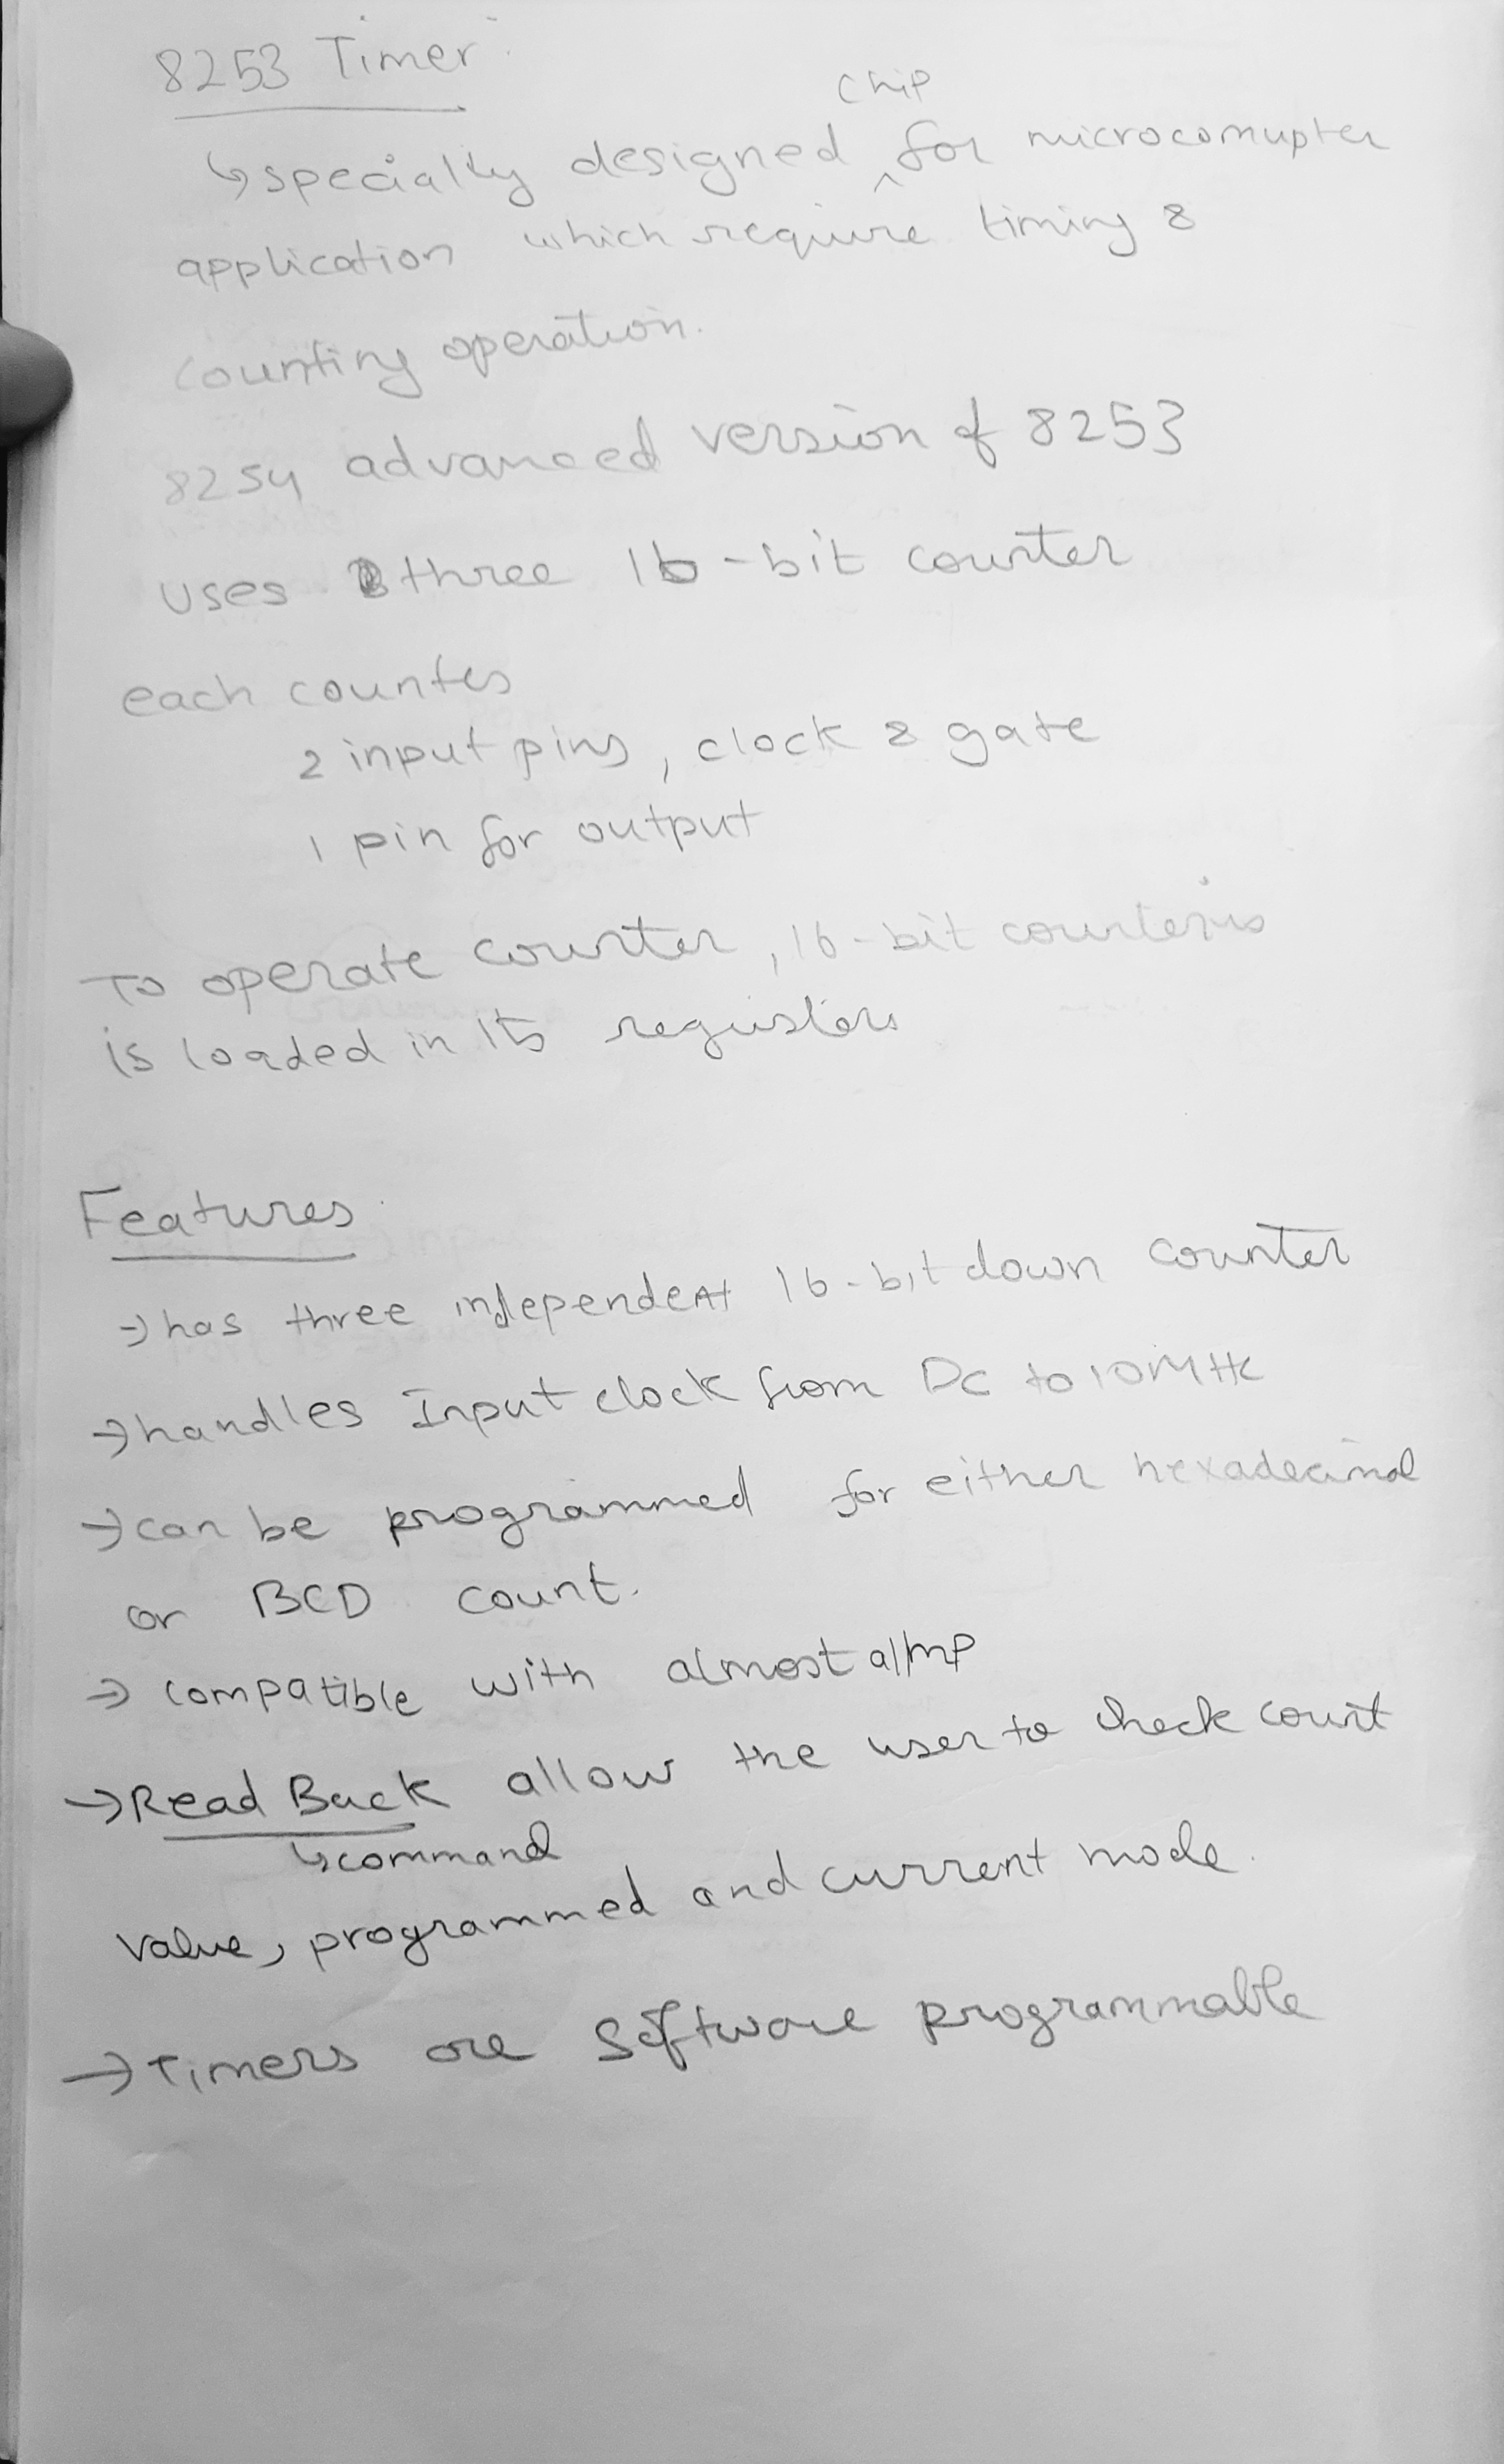 8253 Timer:
chip
↳ specially designed ^ for microcomupter
application which require timing &
counting operation.
8254 advanced version of 8253
uses three 16-bit counter
each counter
2 input pins, clock & gate
1 pin for output
To operate counter, 16-bit counter is
is loaded in its registers
Features
→ has three independent 16-bit down counter
→ handles Input clock from DC to 10MHz
→ can be programmed for either hexadecimal
or BCD count.
→ compatible with almost all mp
→ Read Back allow the user to check count
↳ command
value, programmed and current mode.
→ Timers are Software programmable